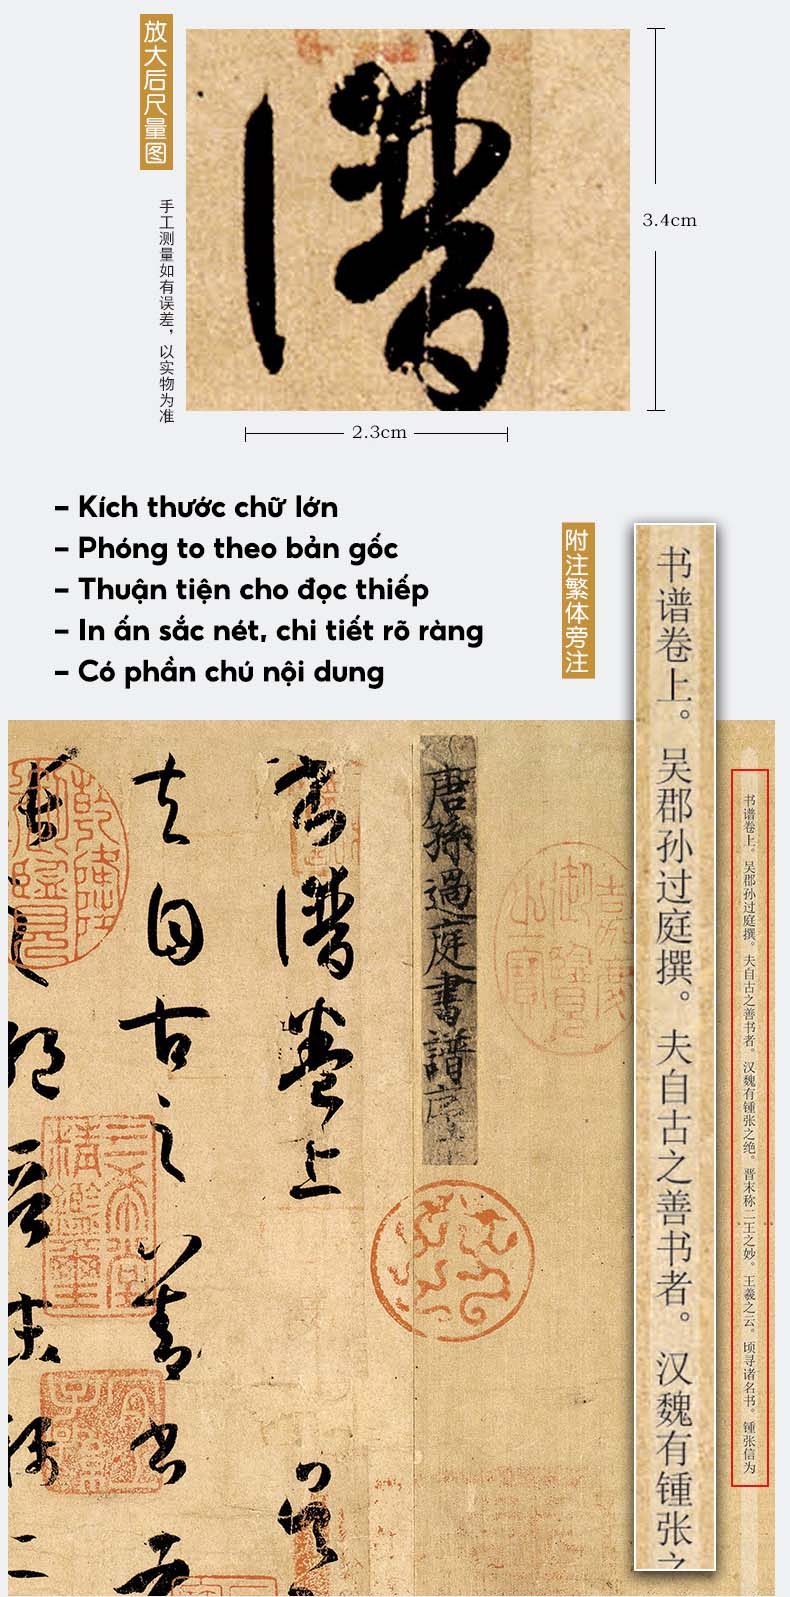 放大后尺量图
手工测量如有误差，以实物为准
譜
3.4cm
2.3cm
– Kích thước chữ lớn
– Phóng to theo bản gốc
– Thuận tiện cho đọc thiếp
– In ấn sắc nét, chi tiết rõ ràng
– Có phần chú nội dung
附注繁体旁注
书谱卷上。吴郡孙过庭撰。夫自古之善书者。汉魏有锺张之
书谱卷上。吴郡孙过庭撰。夫自古之善书者。汉魏有锺张之绝。晋末称二王之妙。王羲之云。顷寻诸名书。锺张信为
唐孫過庭書譜序
書譜卷上 吴
夫自古之善書者